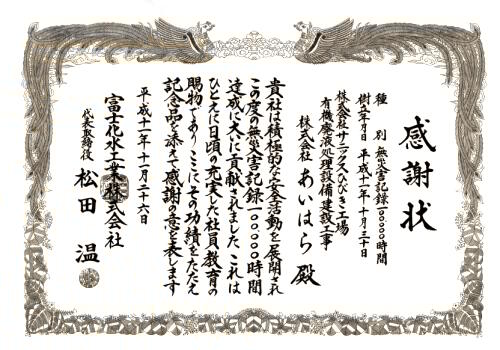 感謝状
種別 無災害記録一〇〇〇〇〇時間
樹立年月日 平成十一年十月三十日
株式会社サニックスひびき工場
有機廃液処理設備建設工事
株式会社 あいはら 殿
貴社は積極的な安全活動を展開され
この度の無災害記録一〇〇〇〇〇時間
達成に大に貢献されました これは
ひとえに日頃の充実した社員教育の
賜物であり ここにその功績をたたえ
記念品を添えて感謝の意を表します
平成十一年十一月二十六日
富士化水工業株式会社
代表取締役 松田 温